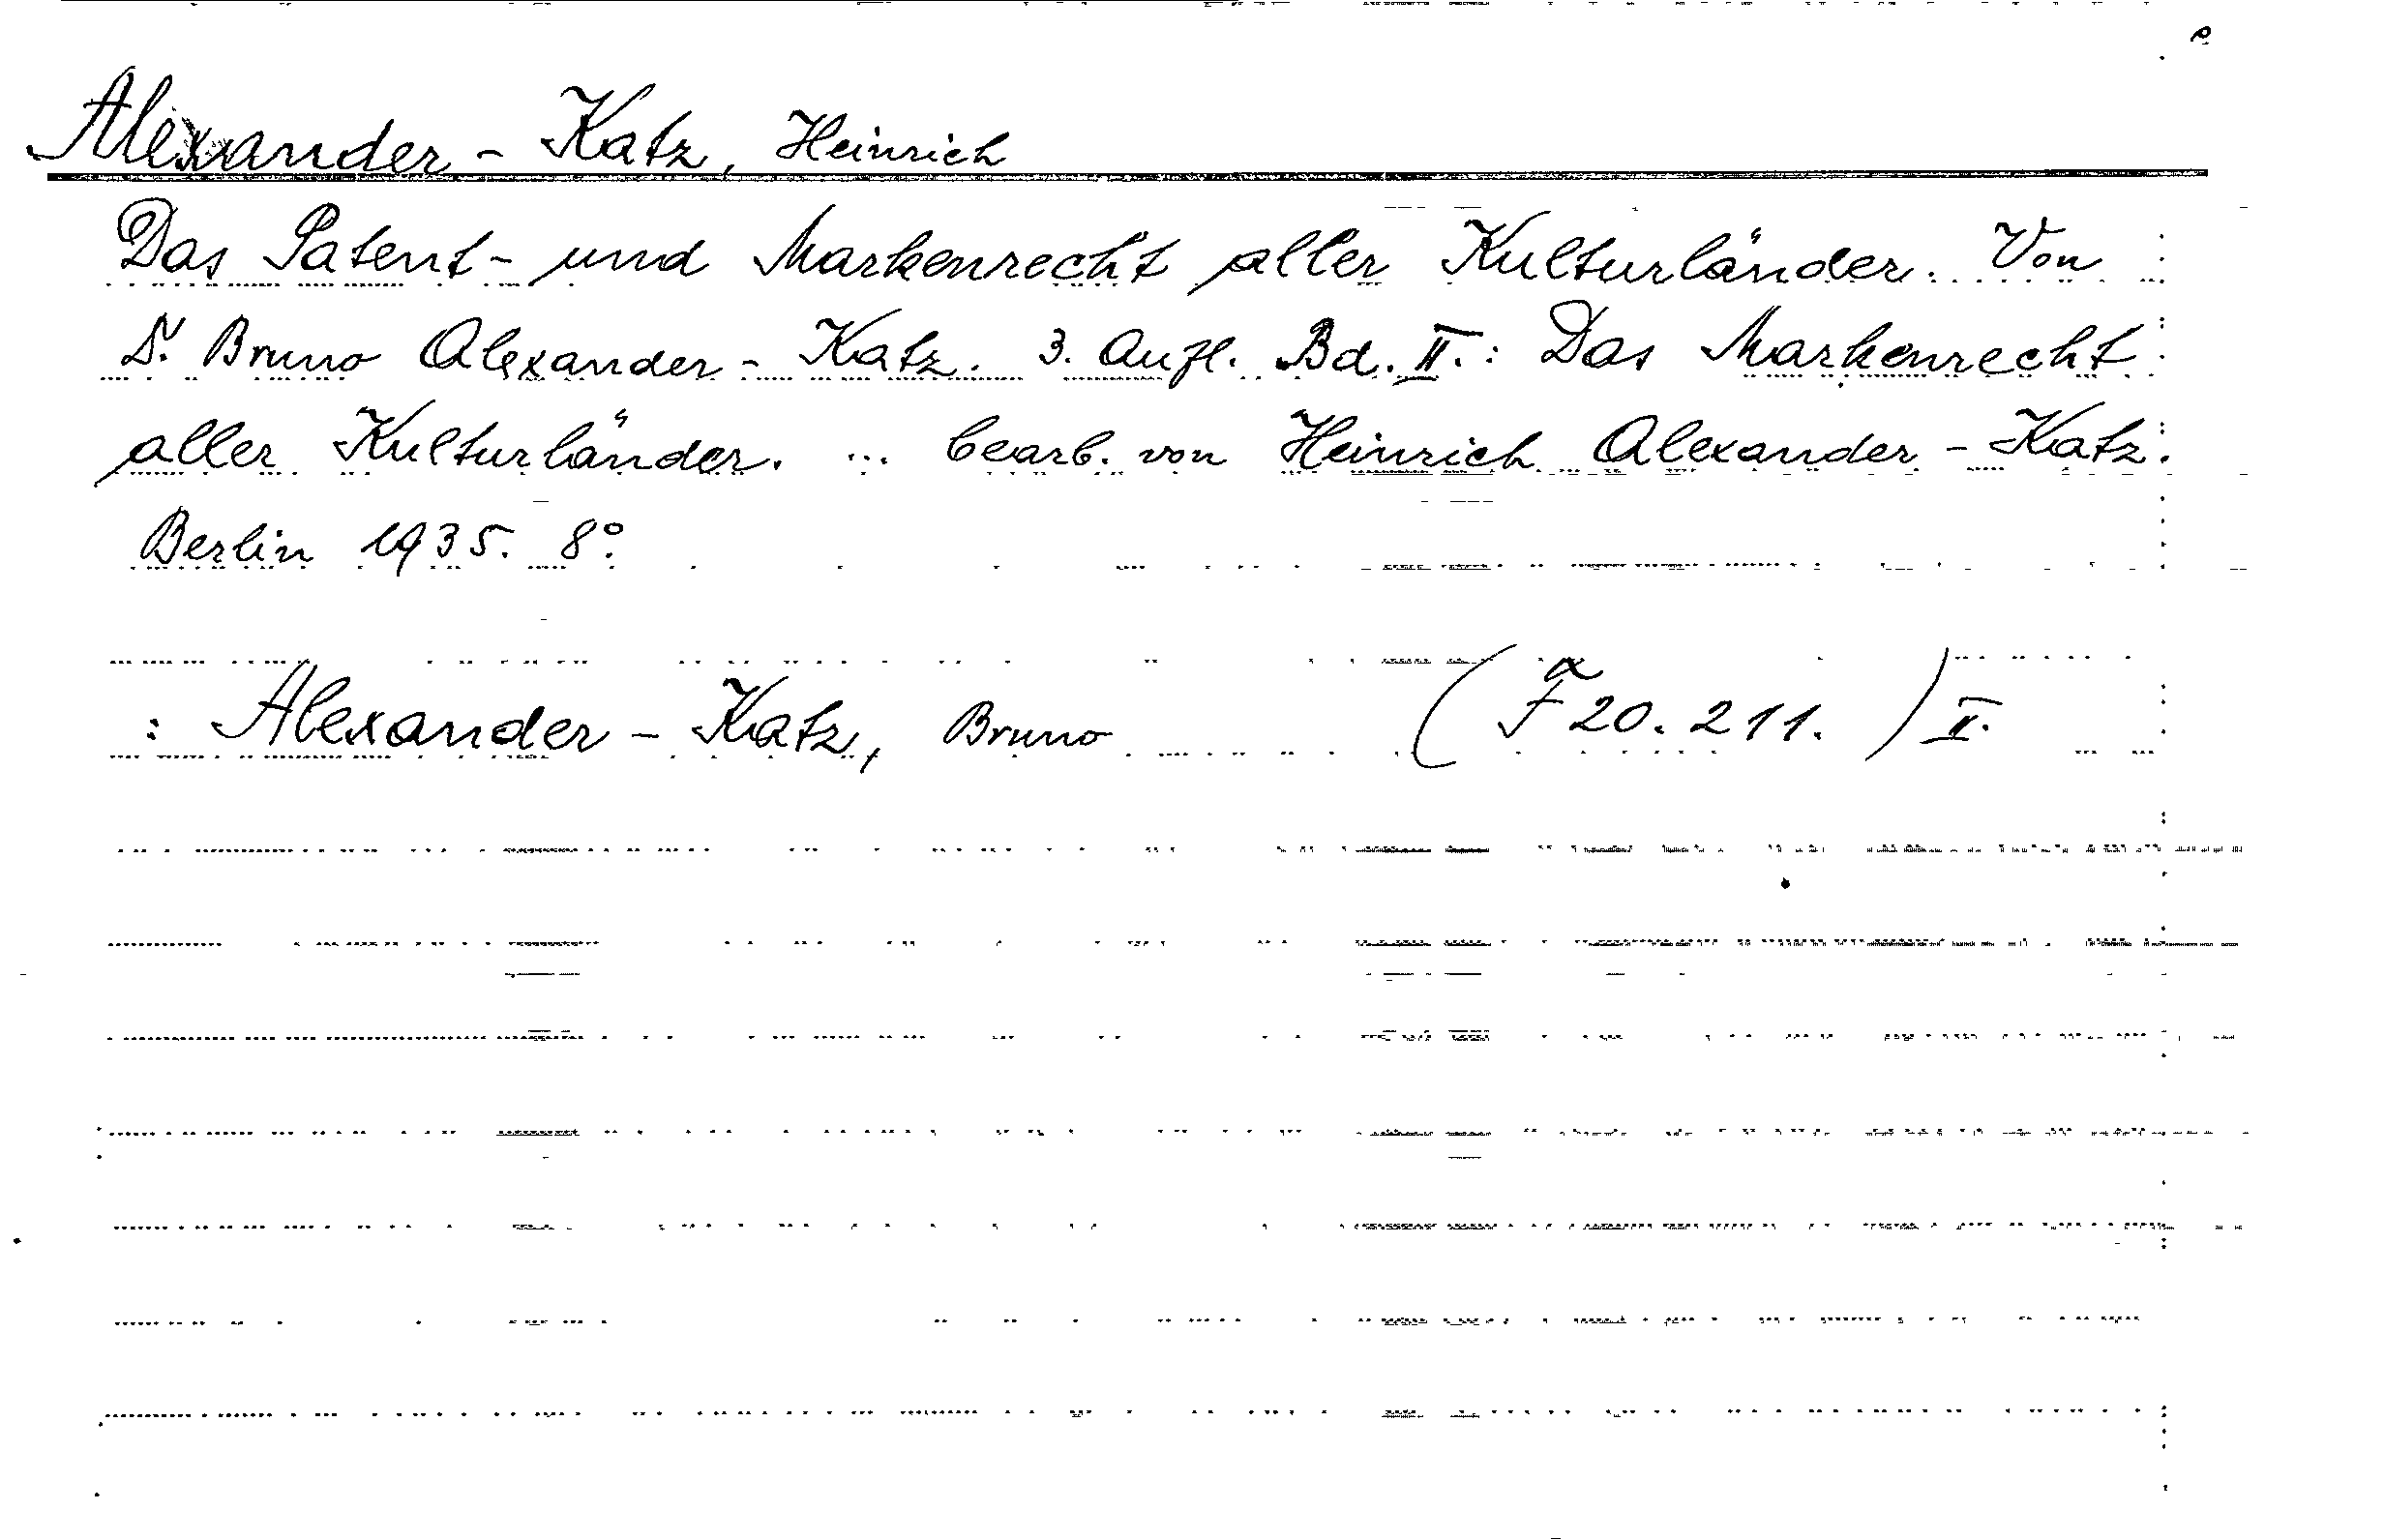 Alexander-Katz, Heinrich
Das Patent- und Markenrecht aller Kulturländer. Von
Dr. Bruno Alexander-Katz. 3. Aufl. Bd. II.: Das Markenrecht
aller Kulturländer. ... bearb. von Heinrich Alexander-Katz.
Berlin 1935. 8°.
: Alexander-Katz, Bruno (Fa 20.211.) II.